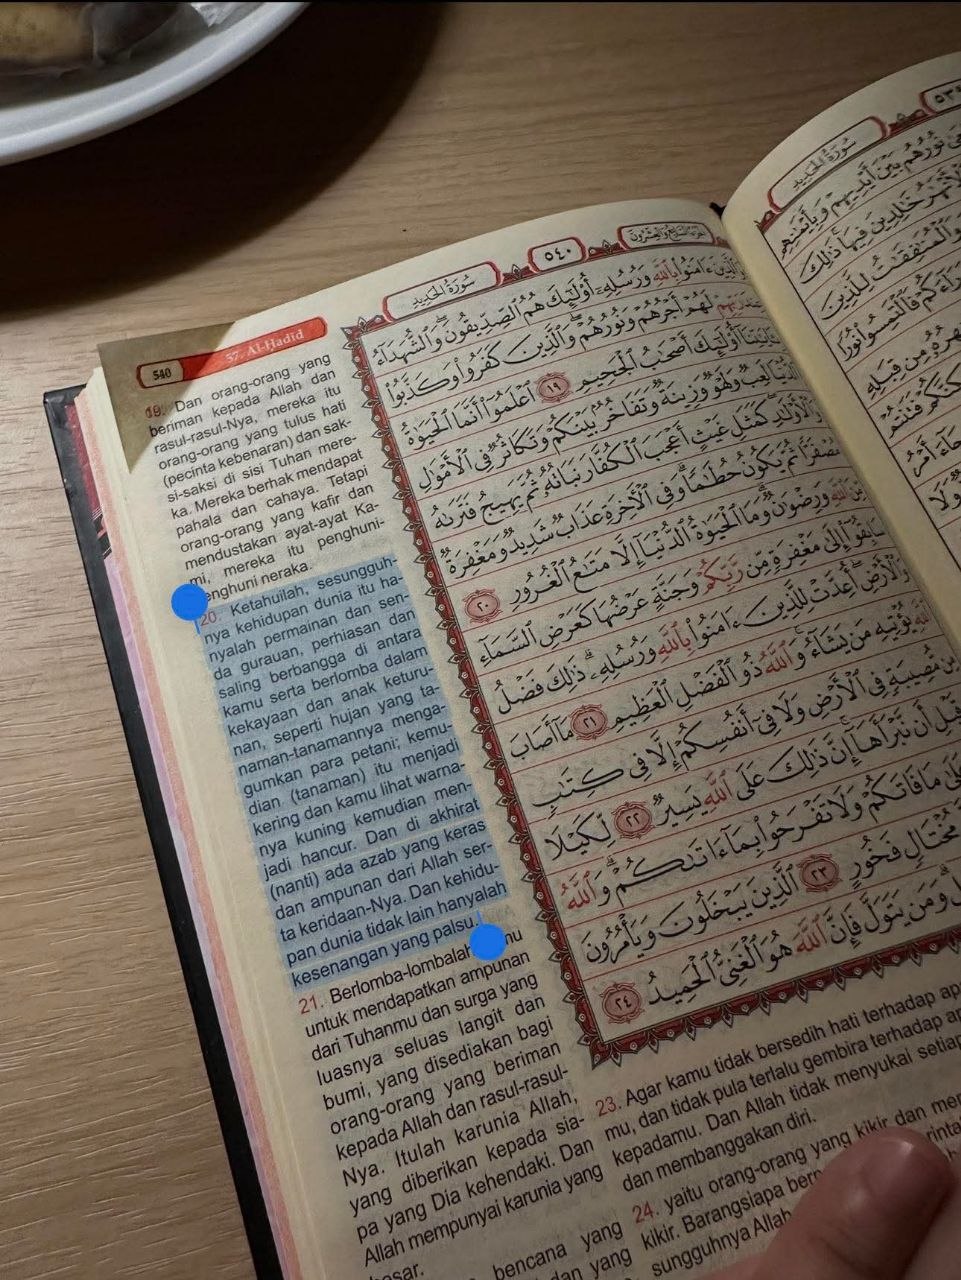 540 57. Al-Ḥadīd
19. Dan orang-orang yang
beriman kepada Allah dan
rasul-rasul-Nya, mereka itu
orang-orang yang tulus hati
(pecinta kebenaran) dan sak-
si-saksi di sisi Tuhan mere-
ka. Mereka berhak mendapat
pahala dan cahaya. Tetapi
orang-orang yang kafir dan
mendustakan ayat-ayat Ka-
mi, mereka itu penghuni-
penghuni neraka.
20. Ketahuilah, sesungguh-
nya kehidupan dunia itu ha-
nyalah permainan dan sen-
da gurauan, perhiasan dan
saling berbangga di antara
kamu serta berlomba dalam
kekayaan dan anak keturu-
nan, seperti hujan yang ta-
naman-tanamannya menga-
gumkan para petani; kemu-
dian (tanaman) itu menjadi
kering dan kamu lihat warna-
nya kuning kemudian men-
jadi hancur. Dan di akhirat
(nanti) ada azab yang keras
dan ampunan dari Allah ser-
ta keridaan-Nya. Dan kehidu-
pan dunia tidak lain hanyalah
kesenangan yang palsu.
21. Berlomba-lombalah kamu
untuk mendapatkan ampunan
dari Tuhanmu dan surga yang
luasnya seluas langit dan
bumi, yang disediakan bagi
orang-orang yang beriman
kepada Allah dan rasul-rasul-
Nya. Itulah karunia Allah,
yang diberikan kepada sia-
pa yang Dia kehendaki. Dan
Allah mempunyai karunia yang
besar.
bencana yang
dan yang
سُورَةُ الْحَدِيدِ ٥٤٠ الْجُزْءُ السَّابِعُ وَالْعِشْرُونَ
وَالَّذِينَ ءَامَنُوا بِاللَّهِ وَرُسُلِهِ أُولَٰئِكَ هُمُ الصِّدِّيقُونَ وَالشُّهَدَاءُ
عِندَ رَبِّهِمْ لَهُمْ أَجْرُهُمْ وَنُورُهُمْ وَالَّذِينَ كَفَرُوا وَكَذَّبُوا
بِـَٔايَٰتِنَا أُولَٰئِكَ أَصْحَٰبُ الْجَحِيمِ ١٩ اعْلَمُوا أَنَّمَا الْحَيَوٰةُ
الدُّنْيَا لَعِبٌ وَلَهْوٌ وَزِينَةٌ وَتَفَاخُرٌ بَيْنَكُمْ وَتَكَاثُرٌ فِى الْأَمْوَٰلِ
وَالْأَوْلَٰدِ كَمَثَلِ غَيْثٍ أَعْجَبَ الْكُفَّارَ نَبَاتُهُ ثُمَّ يَهِيجُ فَتَرَىٰهُ
مُصْفَرًّا ثُمَّ يَكُونُ حُطَٰمًا وَفِى الْءَاخِرَةِ عَذَابٌ شَدِيدٌ وَمَغْفِرَةٌ
مِّنَ اللَّهِ وَرِضْوَٰنٌ وَمَا الْحَيَوٰةُ الدُّنْيَا إِلَّا مَتَٰعُ الْغُرُورِ ٢٠
سَابِقُوا إِلَىٰ مَغْفِرَةٍ مِّن رَّبِّكُمْ وَجَنَّةٍ عَرْضُهَا كَعَرْضِ السَّمَاءِ
وَالْأَرْضِ أُعِدَّتْ لِلَّذِينَ ءَامَنُوا بِاللَّهِ وَرُسُلِهِ ذَٰلِكَ فَضْلُ
اللَّهِ يُؤْتِيهِ مَن يَشَاءُ وَاللَّهُ ذُو الْفَضْلِ الْعَظِيمِ ٢١ مَا أَصَابَ
مِن مُّصِيبَةٍ فِى الْأَرْضِ وَلَا فِى أَنفُسِكُمْ إِلَّا فِى كِتَٰبٍ
مِّن قَبْلِ أَن نَّبْرَأَهَا إِنَّ ذَٰلِكَ عَلَى اللَّهِ يَسِيرٌ ٢٢ لِّكَيْلَا
عَلَىٰ مَا فَاتَكُمْ وَلَا تَفْرَحُوا بِمَا ءَاتَىٰكُمْ وَاللَّهُ
مُخْتَالٍ فَخُورٍ ٢٣ الَّذِينَ يَبْخَلُونَ وَيَأْمُرُونَ
وَمَن يَتَوَلَّ فَإِنَّ اللَّهَ هُوَ الْغَنِىُّ الْحَمِيدُ ٢٤
23. Agar kamu tidak bersedih hati terhadap
mu, dan tidak pula terlalu gembira terhadap
kepadamu. Dan Allah tidak menyukai setiap
dan membanggakan diri.
24. yaitu orang-orang yang kikir dan
kikir. Barangsiapa
sungguhnya Allah
سُورَةُ الْحَدِيدِ ٥٣٩
نُورُهُم بَيْنَ أَيْدِيهِمْ وَبِأَيْمَٰنِهِم
الْأَنْهَٰرُ خَٰلِدِينَ فِيهَا ذَٰلِكَ
وَالْمُنَٰفِقَٰتُ لِلَّذِينَ
وَرَاءَكُمْ فَالْتَمِسُوا نُورًا
مِن قِبَلِهِ
فَتَنتُمْ
جَاءَ أَمْرُ
وَلَا